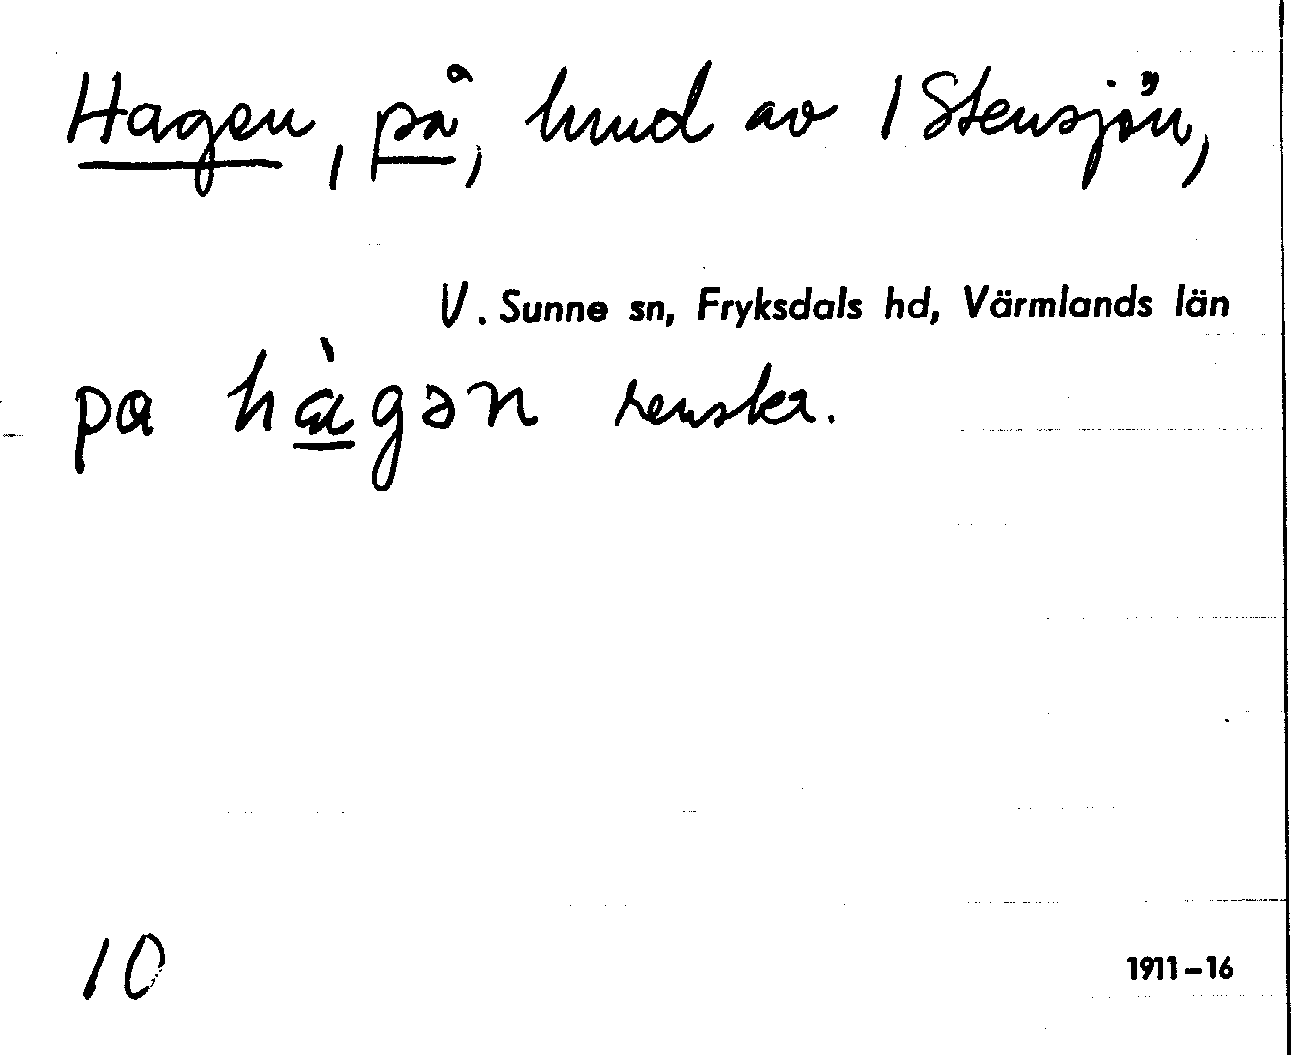 Hagen, på, hmd av 1 Stensjön,
V. Sunne sn, Fryksdals hd, Värmlands län
pa hàgən
10
1911–16